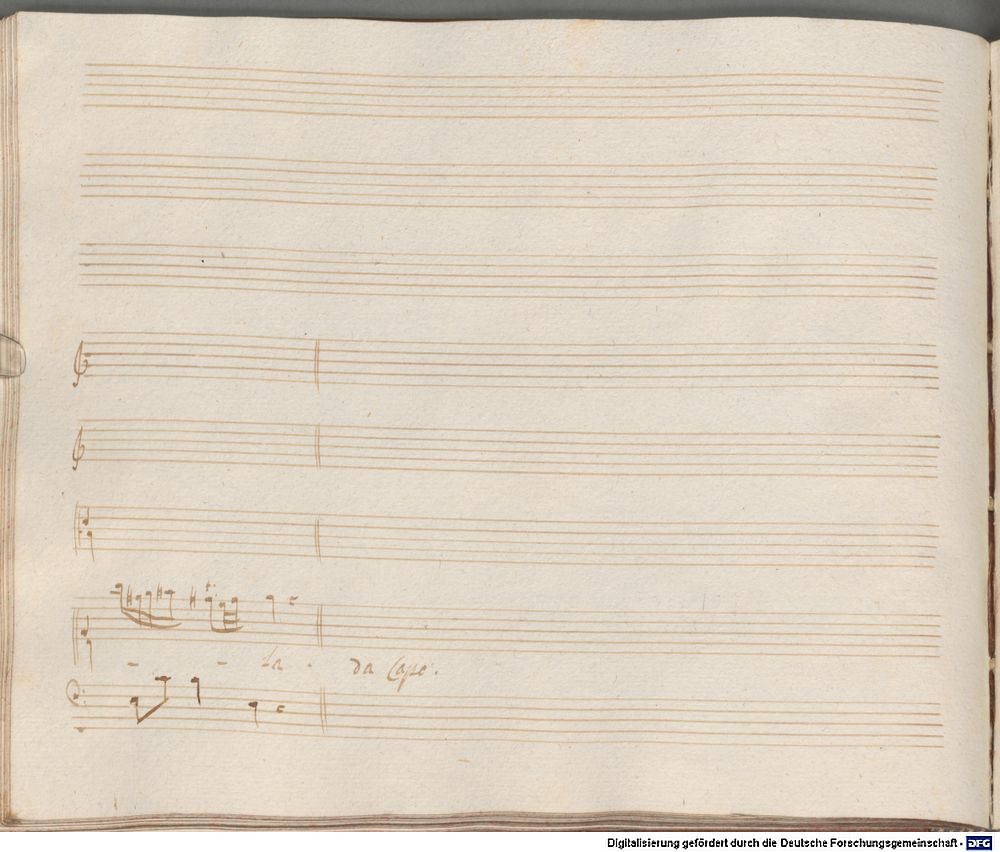 - - ta . Da Capo.
Digitalisierung gefördert durch die Deutsche Forschungsgemeinschaft - DFG